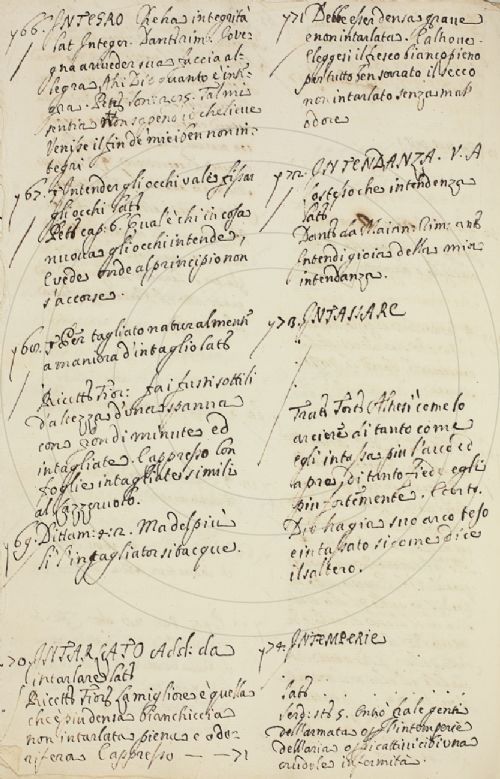 766. INTEGRO Che ha integrità
lat Integer. Dant
gna a riveder sua faccia al-
legra, Phi Dio quanto è inte-
gra. Petr Son
sentia non sapeno io che lieve
Venisse il fin de miei ben non in-
tegri
767. Intender gli occhi vale fissar
gli occhi lat
Petr cap: 6. Qual è chi in cosa
nuova gli occhi intende,
E vede onde al principio non
s'accorse.
768. Per tagliato naturalmente
a maniera d'intaglio lat
Ricett Fior: fa i fusti sottili
d'altezza d'una spanna
con frondi minute ed
intagliate. E appresso Con
foglie intagliate simili
al
769. Dittam: 2:2. Ma del più
li s'intagliator si tacque.
70. INTARLATO Add: da
intarlare lat
Ricett Fior La migliore è quella
che è più densa bianchiccia
non intarlata piena e odo-
rifera E appresso — — 71
771 Debbe esser densa grave
e non intarlata. E altrove
Eleggesi il fresco bianco pieno
per tutto ben serrato il secco
non intarlato senza mal
odore
772. INTENDANZA. V. A
lo stesso che intendenza
lat
Dant da Maian: Rim: ant
Intendi gioia della mia
intendanza.
773. INTASSARE
Tratt Fort Altresì come lo
arciere ai tanto come
egli intassa più l'arco ed
apre, di tanto fiede egli
più fortemente. E certo.
Dio hagia suo arco teso
e intassato siccome dice
il saltero.
774. INTEMPERIE
lat
Serd: st 5. Entrò tra le genti
dell'armata o per l'intemperie
dell'aria o per i cattivi cibi una
crudele infermità.